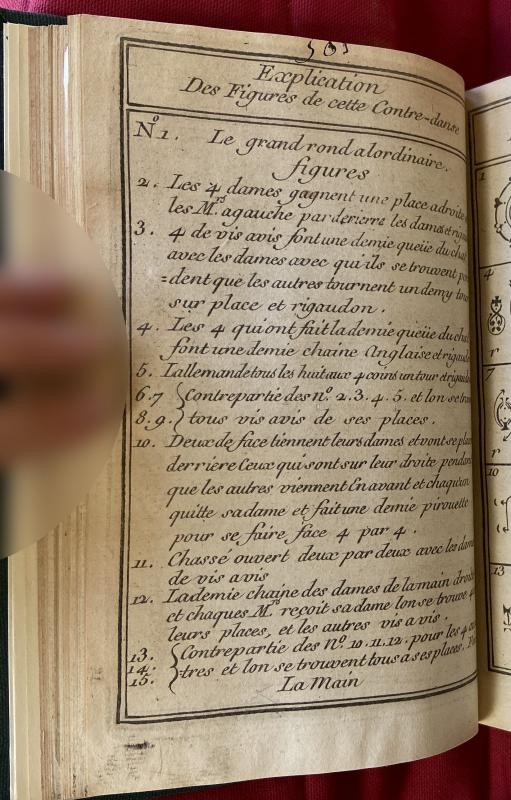 Explication
Des Figures de cette Contre-danse
No 1. Le grand rond alordinaire.
figures
2. Les 4 dames gagnent une place adroite
les Mrs agauche par derierre les dames et
3. 4 de vis avis font une demie queüe du
avec les dames avec qui ils se trouvent
=dent que les autres tournent un demy tour
sur place et rigaudon.
4. Les 4 qui ont fait la demie queüe du
font une demie chaine Anglaise et
5. Lallemande tous les huit aux 4 coins un tour et
6.7 Contrepartie des no. 2.3.4.5. et lon se
8.9. tous vis avis de ses places.
10. Deux de face tiennent leurs dames et vont se
derriere Ceux qui sont sur leur droite
que les autres viennent En avant et chaqu'un
quitte sa dame et fait une demie pirouette
pour se faire face 4 par 4.
11. Chassé ouvert deux par deux avec les
de vis avis
12. La demie chaine des dames de la main
et chaques Mrs reçoit sa dame lon se trouve 4
leurs places, et les autres vis a vis.
13. Contrepartie des No. 10.11.12. pour les 4
14. tres et lon se trouvent tous a ses places.
15.
La Main
1
4
r
7
r
10
13